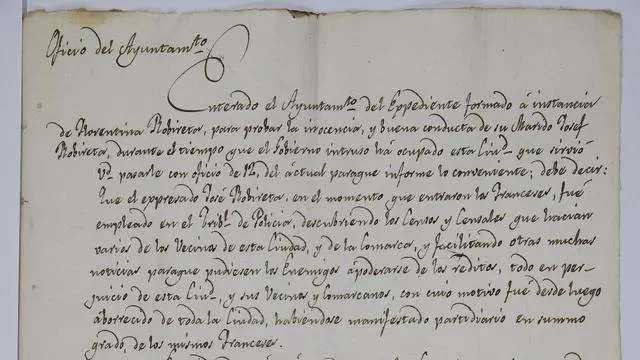 Oficio del Ayuntam.to
Enterado el Ayuntam.to del Expediente formado á instancia
de Florentina Robireta, para probar la inocencia, y buena conducta de su Marido Josef
Robireta, durante el tiempo que el Gobierno intruso há ocupado esta Ciud. que sirvió
V.S. pasarle con oficio de 12, del actual paraque informe lo convenente; debe decir:
Que el expresado José Robireta, en el momento que entraron los Franceses, fué
empleado en el Tribl. de Policia, descubriendo los Censos y Censales que hacian
varios de los Vecinos de esta Ciudad, y de la Comarca, y facilitando otras muchas
noticias paraque pudiesen los Enemigos apoderarse de los reditos, todo en per-
juicio de esta Ciud., y sus Vecinos y Comarcanos, con cuio motivo fué desde luego
aborrecido de toda la Ciudad, habiendose manifestado partidiario en summo
grado, de los mismos Franceses.